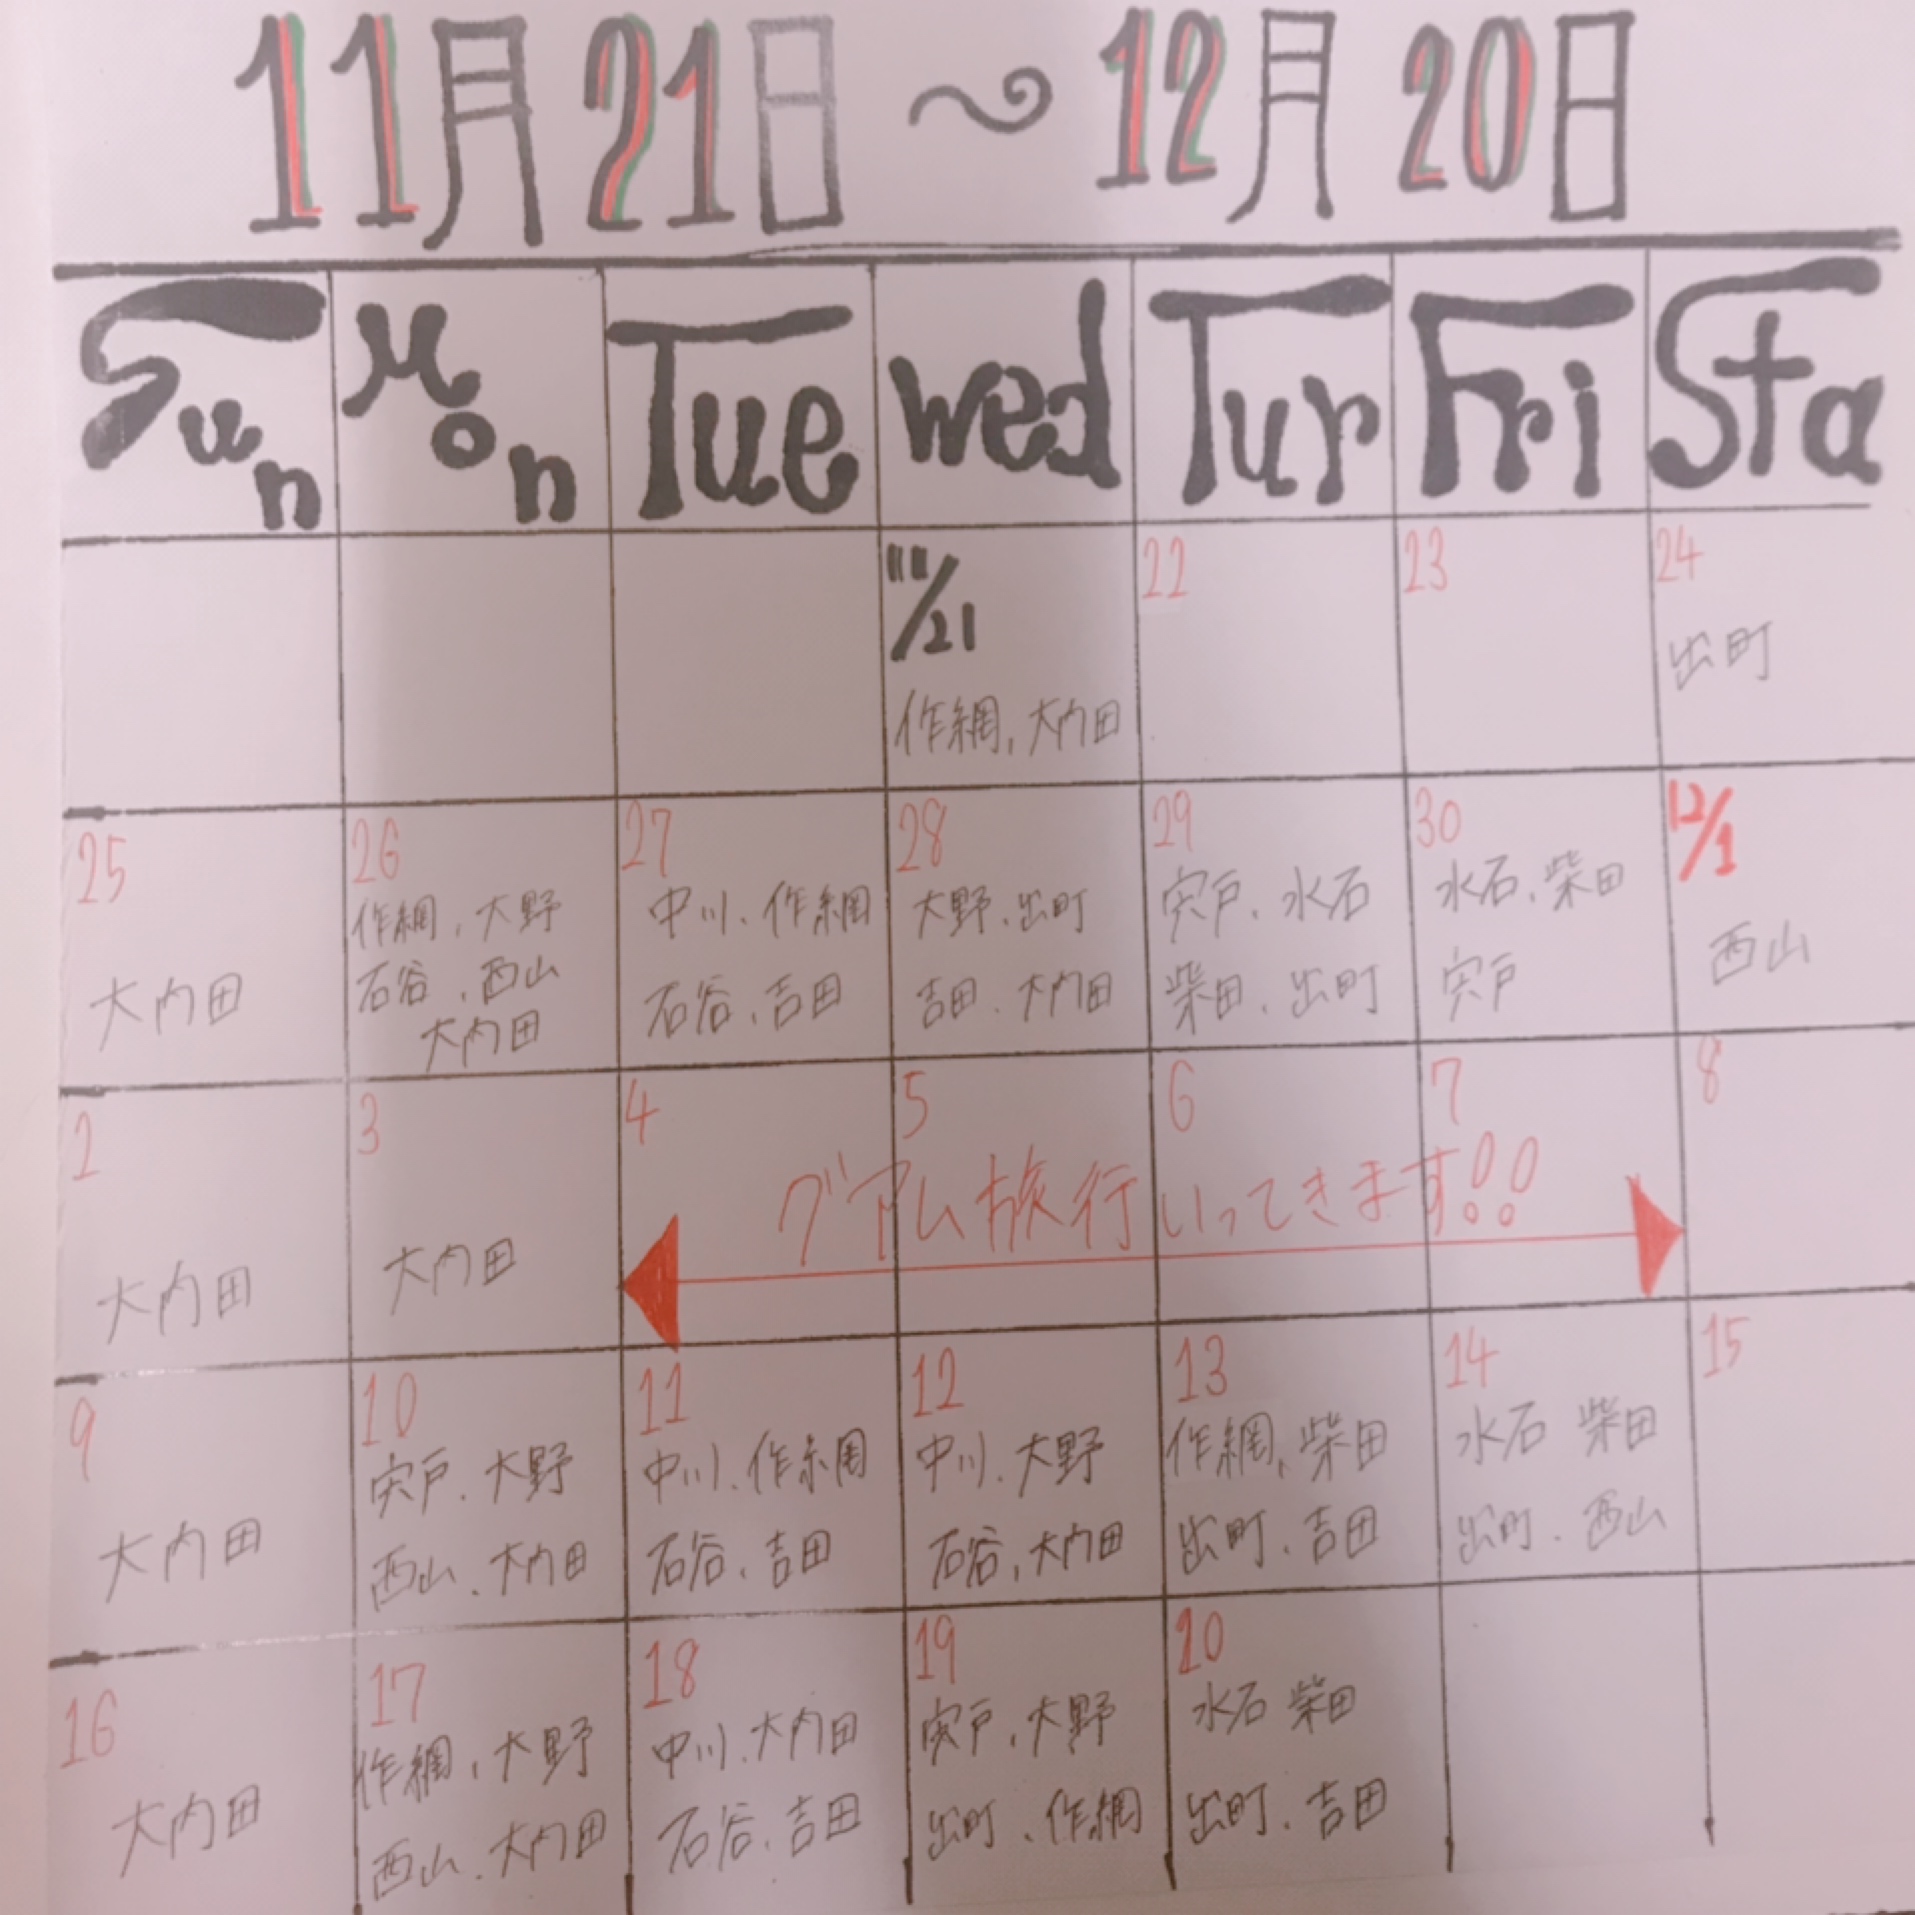 11月21日～12月20日
Sun Mon Tue Wed Tur Fri Sta
11/21 22 23 24
作網, 大内田
出町
25 26 27 28 29 30 12/1
大内田
作網, 大野
石谷, 西山
大内田
中川. 作網
石谷, 吉田
大野. 出町
吉田. 大内田
宍戸. 水石
柴田. 出町
水石, 柴田
宍戸
西山
2 3 4 5 6 7 8
大内田
大内田
グアム旅行いってきます!!
9 10 11 12 13 14 15
大内田
宍戸. 大野
西山. 大内田
中川. 作網
石谷, 吉田
中川. 大野
石谷, 大内田
作網, 柴田
出町. 吉田
水石 柴田
出町. 西山
16 17 18 19 20
大内田
作網, 大野
西山. 大内田
中川. 大内田
石谷, 吉田
宍戸, 大野
出町. 作網
水石 柴田
出町. 吉田